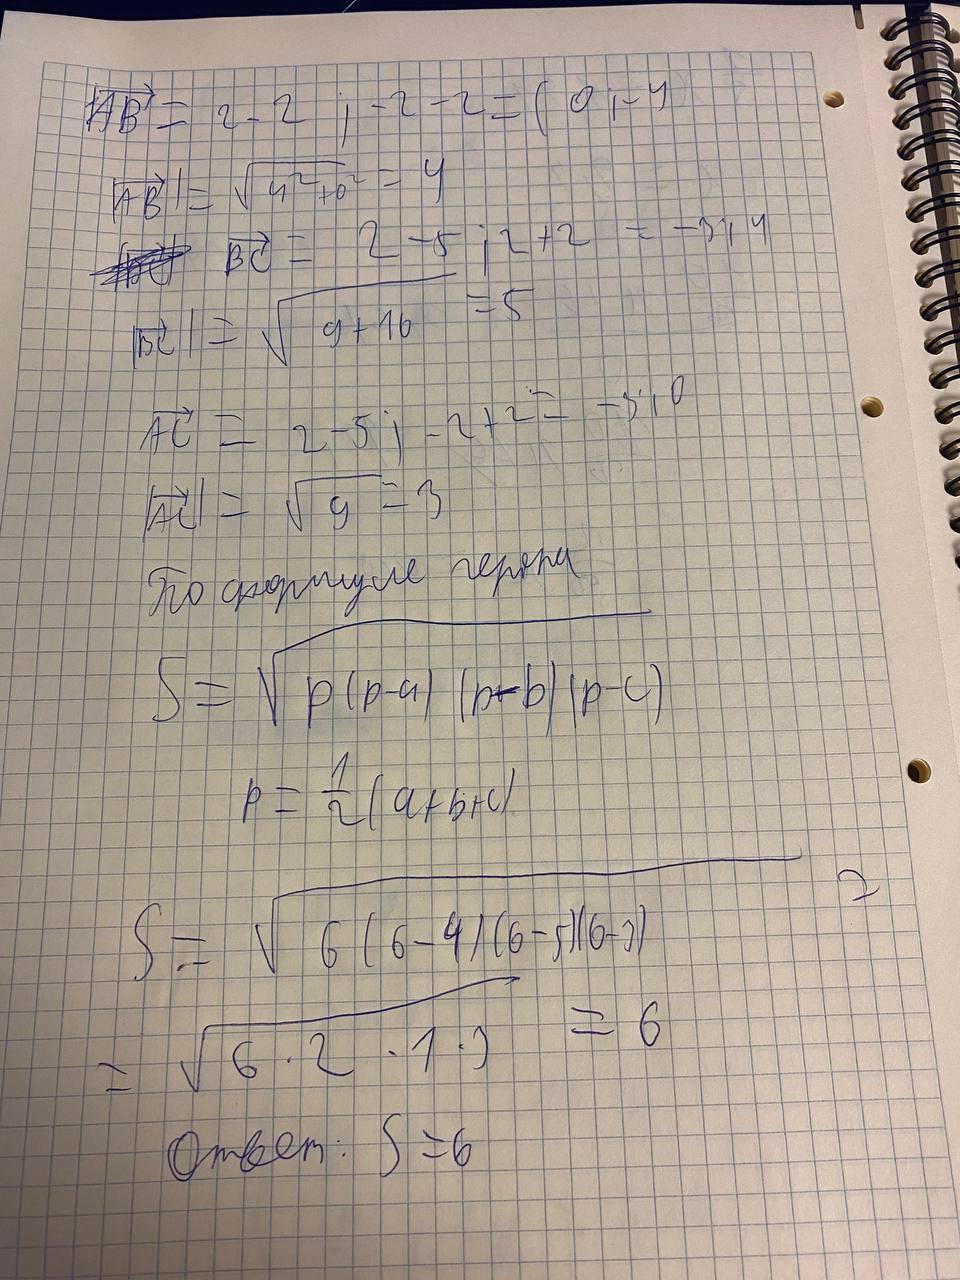 |AB| = 2-2 ; -2-2 = ( 0 ; -4
|AB| = √4²+0² = 4
BC = 2-5 ; 2+2 = -3 ; 4
|BC| = √9+16 = 5
AC = 2-5 ; -2+2 = -3 ; 0
|AC| = √9 = 3
По формуле герона
S = √p(p-a) (p-b) (p-c)
p = 1/2 (a+b+c)
S = √6(6-4)(6-5)(6-3) =
= √6·2·1·3 = 6
Ответ: S = 6